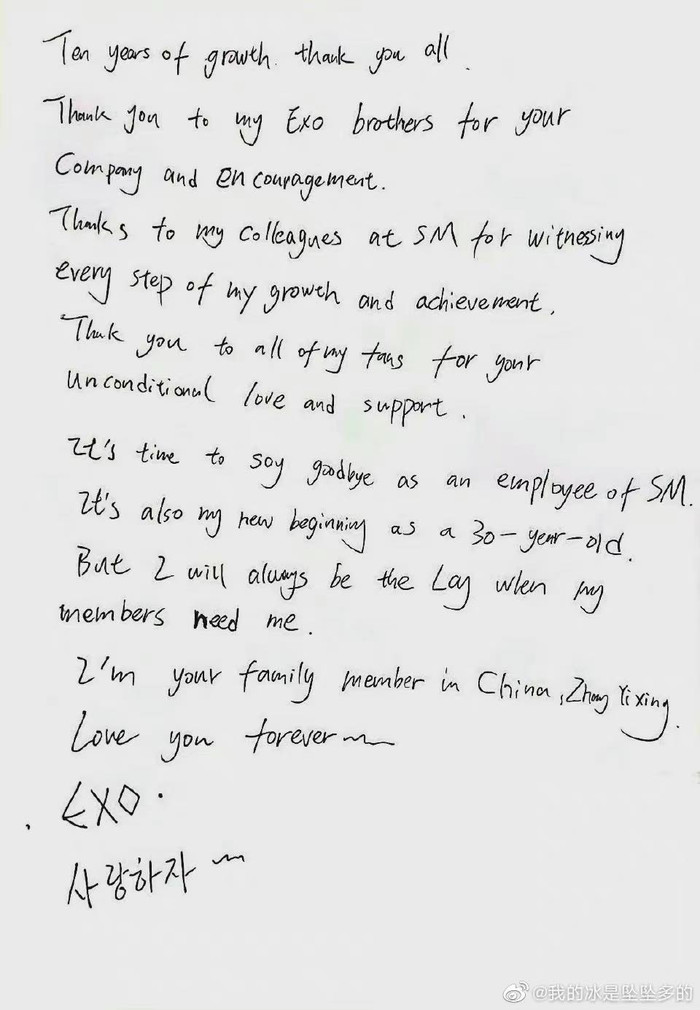 Ten years of growth. thank you all.
Thank you to my Exo brothers for your
Company and encouragement.
Thanks to my colleagues at SM for witnessing
every step of my growth and achievement.
Thank you to all of my fans for your
Unconditional love and support.
It's time to say goodbye as an employee of SM.
It's also my new beginning as a 30-year-old.
But I will always be the Lay when my
members need me.
I'm your family member in China, Zhang Yixing.
Love you forever~
EXO.
사랑하자~
@我的冰是坠坠多的